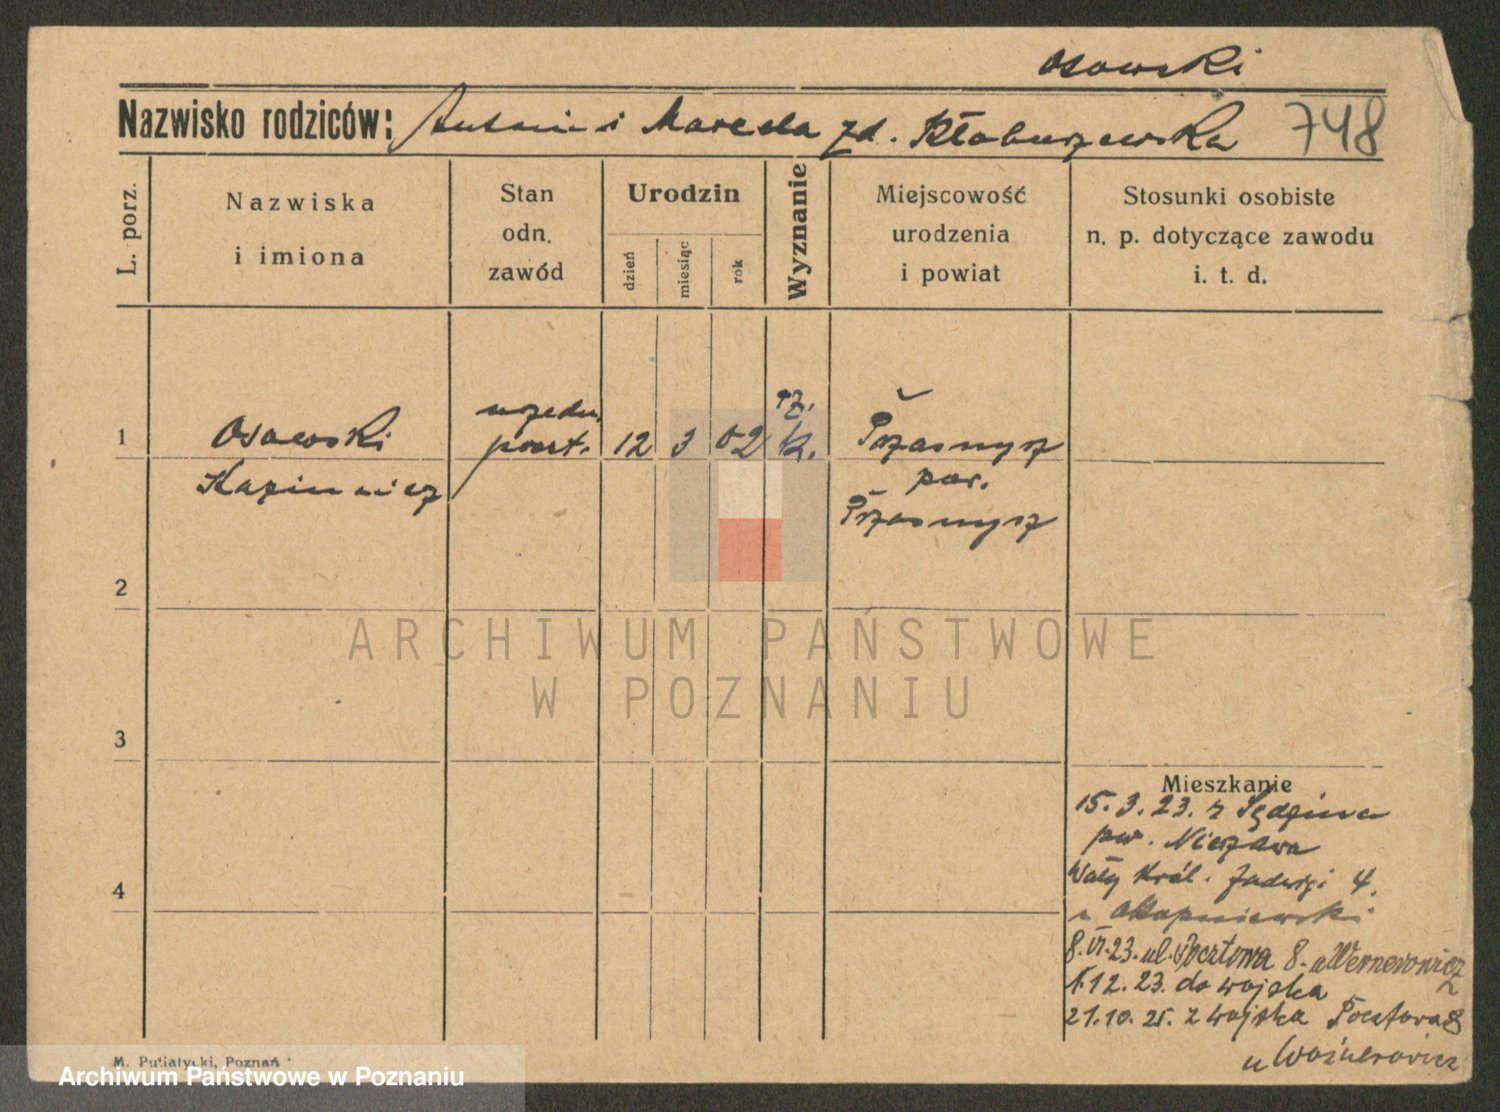 Osowski
Nazwisko rodziców: Antoni i Marcela zd. Kłobuszewska 748
L. porz.
Nazwiska
i imiona
Stan
odn.
zawód
Urodzin
dzień
miesiąc
rok
Wyznanie
Miejscowość
urodzenia
i powiat
Stosunki osobiste
n. p. dotyczące zawodu
i. t. d.
1
Osowski
Kazimierz
urzędn.
poczt.
12 3 02
rz.
k.
Przasnysz
pow.
Przasnysz
2
3
4
ARCHIWUM PAŃSTWOWE
W POZNANIU
Mieszkanie
15. 3. 23. z
pow. Nieszawa
Wały Król. Jadwigi 4.
u
8. VI. 23. ul. Pocztowa 8. u
1. 12. 23. do wojska
21. 10. 25. z wojska Pocztowa 8
u Woźnerowicz
M. Putiatycki, Poznań
Archiwum Państwowe w Poznaniu